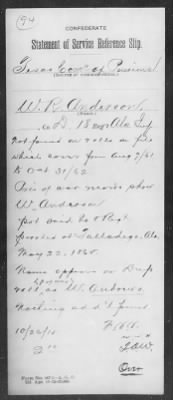 (94)
CONFEDERATE
Statement of Service Reference Slip.
Texas Com'r of Pensions
W. R. Anderson
Co D. 18 Ala Inf
Not found on rolls on file
which cover from Aug 7/61
to Oct 31/62
Pris of war records show
W Anderson
pvt Co D
paroled at Talladega, Ala.
May 22. 1865.
Name appears on
roll, as W. Anderson
Nothing add'l found
10/26/10
Over